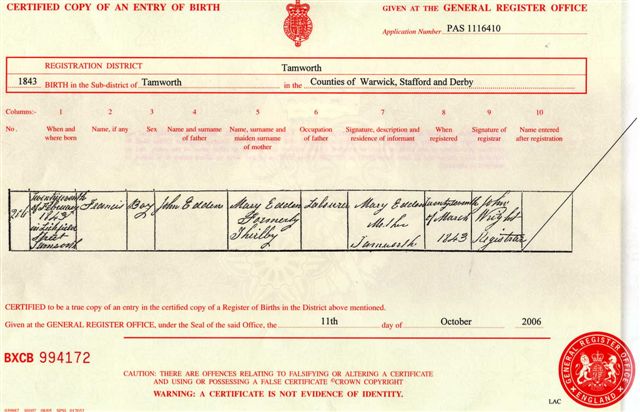 CERTIFIED COPY OF AN ENTRY OF BIRTH
GIVEN AT THE GENERAL REGISTER OFFICE
Application Number PAS 1116410
REGISTRATION DISTRICT Tamworth
1843 BIRTH in the Sub-district of Tamworth in the Counties of Warwick, Stafford and Derby
Columns:- 1 2 3 4 5 6 7 8 9 10
No. When and where born
Name, if any
Sex
Name and surname of father
Name, surname and maiden surname of mother
Occupation of father
Signature, description and residence of informant
When registered
Signature of registrar
Name entered after registration
216
of February
1843
Street
Tamworth
Francis
Boy
John Edden
Mary Edden
Formerly
Thirlby
Labourer
Mary Edden
Mother
Tamworth
of March
1843
John
Wright
Registrar
CERTIFIED to be a true copy of an entry in the certified copy of a Register of Births in the District above mentioned.
Given at the GENERAL REGISTER OFFICE, under the Seal of the said Office, the 11th day of October 2006
BXCB 994172
CAUTION: THERE ARE OFFENCES RELATING TO FALSIFYING OR ALTERING A CERTIFICATE
AND USING OR POSSESSING A FALSE CERTIFICATE ©CROWN COPYRIGHT
WARNING: A CERTIFICATE IS NOT EVIDENCE OF IDENTITY.
GENERAL REGISTER OFFICE
ENGLAND
LAC